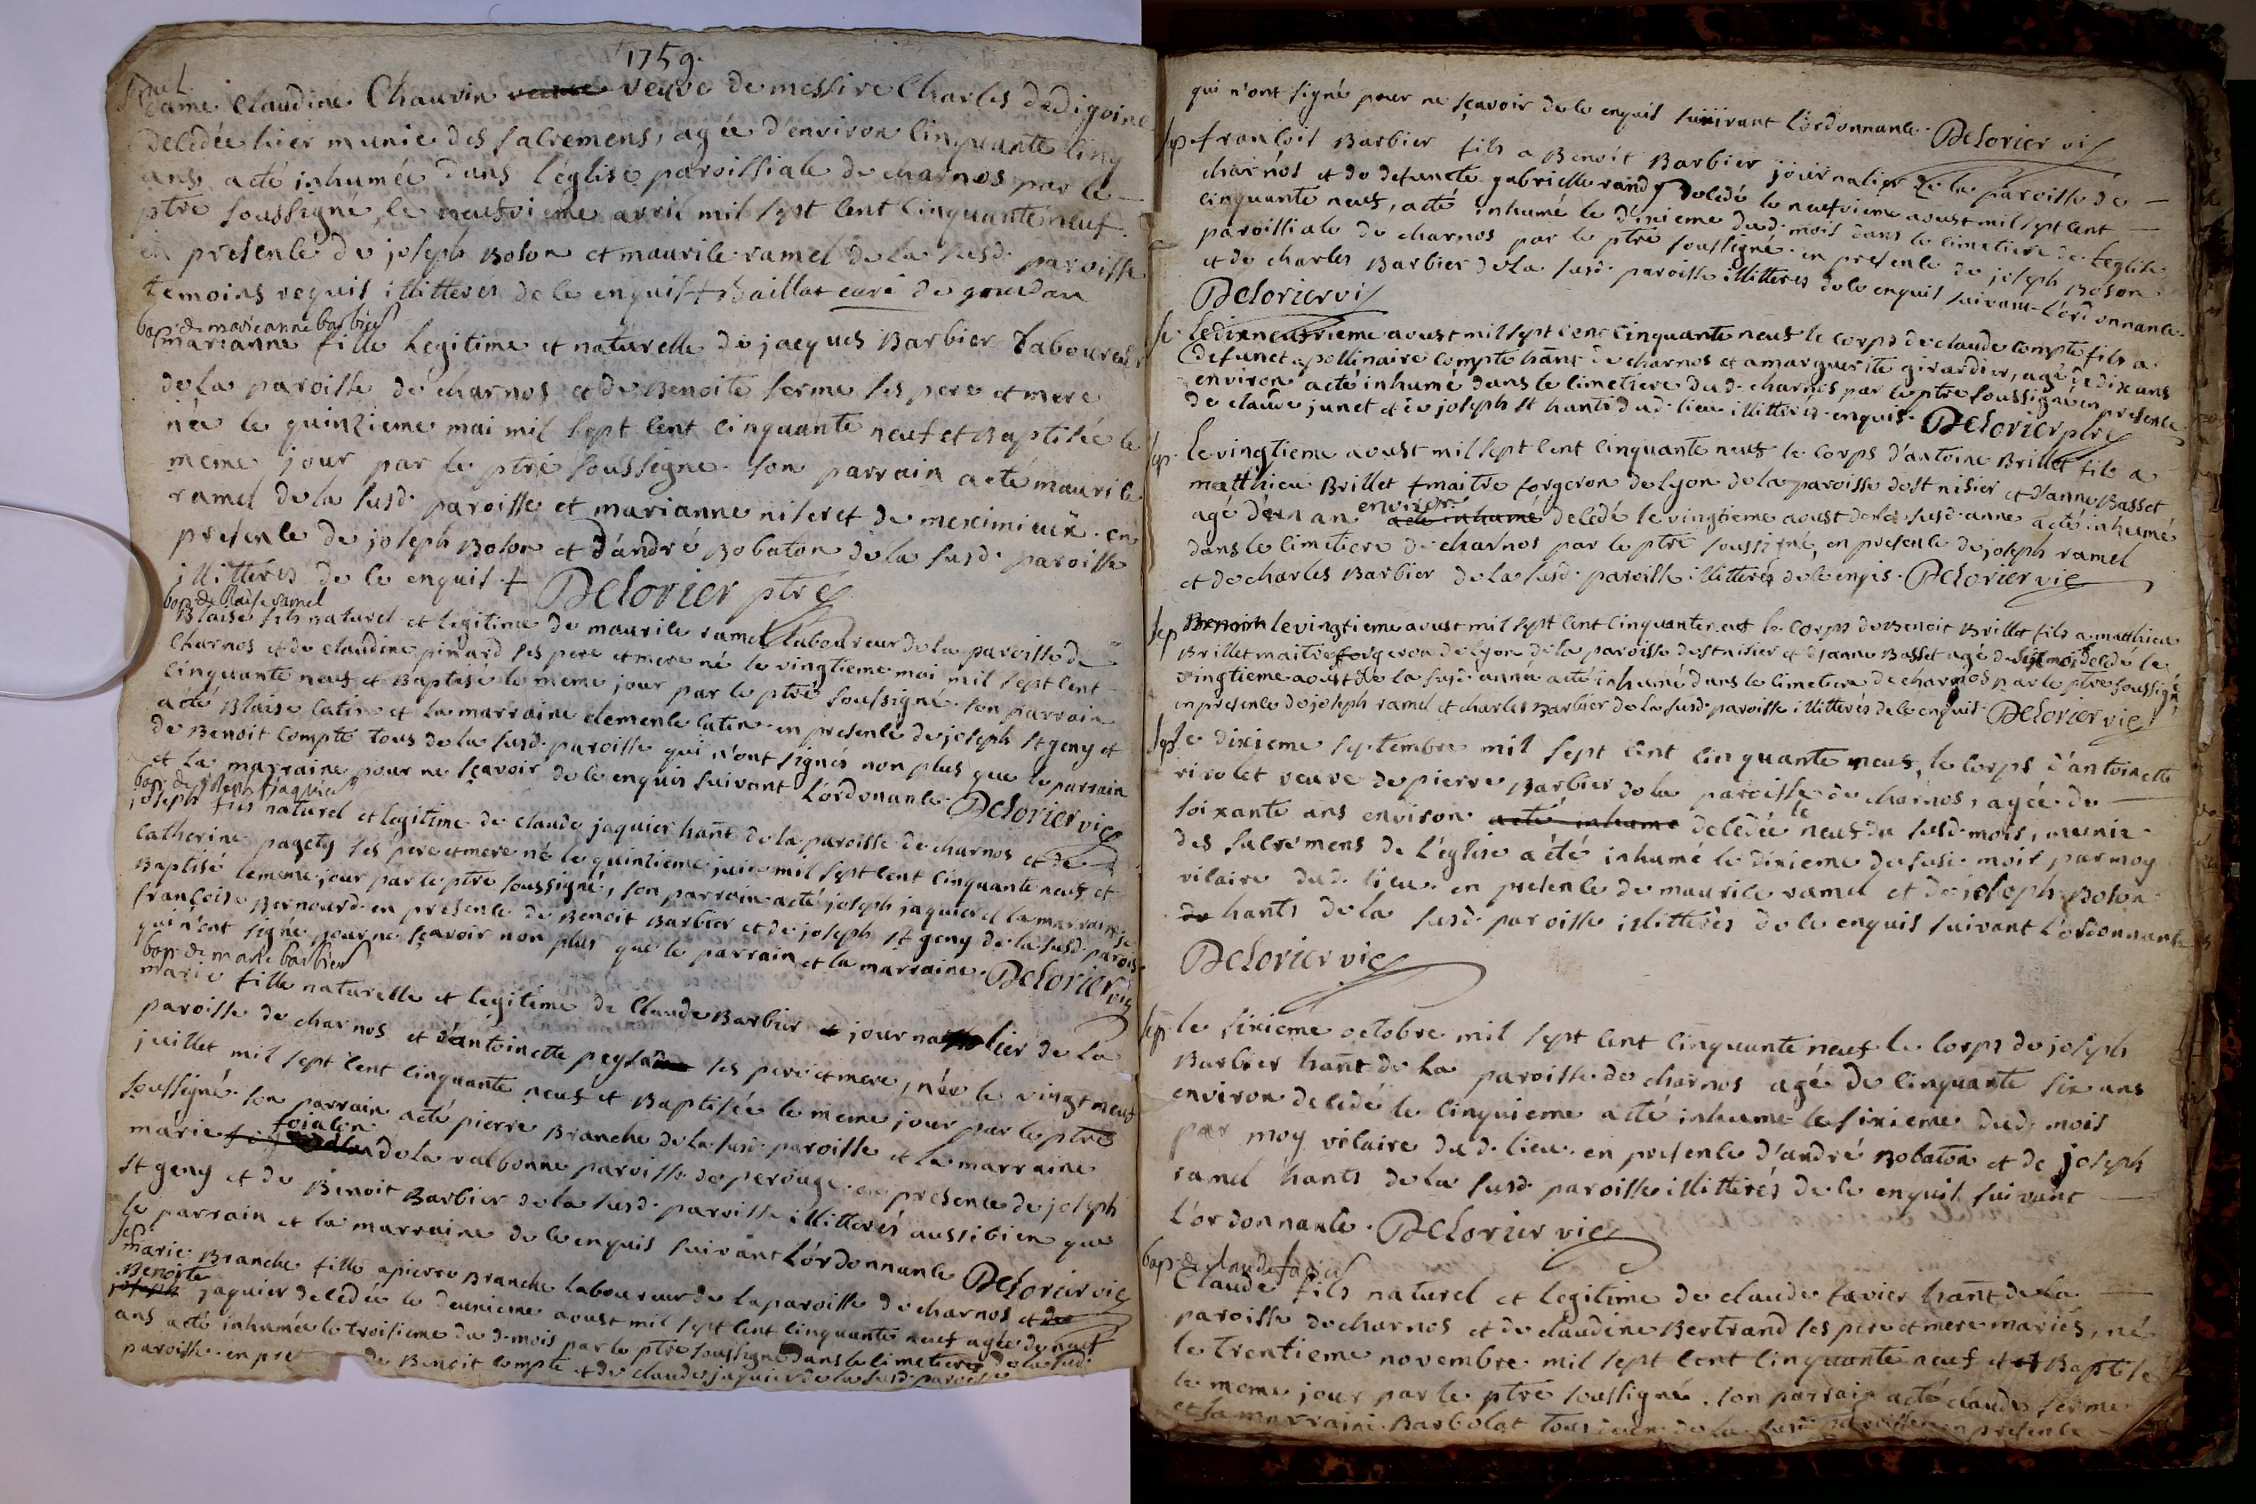 1759.
dame Claudine Chauvin veuve de messire Charles dedigoine
decedée hier munie des sacremens, agée d'environ cinquante cinq
ans acté inhumée dans l'église paroissiale de charnos par le
ptre soussigné, le neufvieme avril mil sept cent cinquante neuf.
en presence de joseph Boson et maurile ramel de la susd. paroisse
temoins requis illitteres de ce enquis + Baillat curé de gourdan
bap. de marianne barbier
marianne fille legitime et naturelle de jacques Barbier laboureur
de la paroisse de charnos et de Benoite ferme ses pere et mere
née le quinzieme mai mil sept cent cinquante neuf et Baptisée le
meme jour par le ptre soussigne. son parrain acté maurile
ramel de la susd. paroisse et marianne niseret de meximieux. en
presence de joseph Boson et d'andré Bobaton de la susd. paroisse
illitteres de ce enquis + Delorier ptre
bap. de Blaise ramel
Blaise fils naturel et legitime de maurile ramel laboureur de la paroisse de
Charnos et de claudine pinard ses pere et mere né le vingtieme mai mil sept cent
cinquante neuf et Baptisé le meme jour par le ptre soussigné. son parrain
acté Blaise catin et la marraine clemence catin. en presence de joseph st geny et
de Benoit compte tous de la susd. paroisse qui n'ont signés non plus que le parrain
et la marraine pour ne sçavoir de ce enquis suivant l'ordonance. Delorier vic
bap. de joseph jaquier
joseph fils naturel et legitime de claude jaquier hant de la paroisse de charnos et de
Catherine pagety ses pere et mere né le quinzieme juin mil sept cent cinquante neuf et
Baptisé le meme jour par le ptre soussigné, son parrain acté joseph jaquier et la marraine
françoise Bernourd. en presence de Benoit Barbier et de joseph st geny de la susd. paroisse
qui n'ont signé pour ne sçavoir non plus que le parrain et la marraine. Delorier vic
bap. de marie barbier
marie fille naturelle et legitime de Claude Barbier journalier de la
paroisse de charnos et d'antoinette ses pere et mere, née le vingt neuf
juillet mil sept cent cinquante neuf et Baptisée le meme jour par le ptre
soussigné. son parrain acté pierre Branche de la susd. paroisse et la marraine
marie fojalon de la valbonne paroisse de perouge. en presence de joseph
st geny et de Benoit Barbier de la susd. paroisse illitterés aussi bien que
le parrain et la marraine de ce enquis suivant l'ordonnance Delorier vic
sep.
marie Branche fille a pierre Branche laboureur de la paroisse de charnos et de
Benoite jaquier decedée le deuxieme aoust mil sept cent cinquante neuf agée de neuf
ans acté inhumée le troisieme dud. mois par le ptre soussigné dans le cimetiere de la susd.
paroisse. en de Benoit compte et de claude jaquier de la susd. paroisse
qui n'ont signé pour ne sçavoir de ce enquis suivant l'ordonnance. Delorier vic
sep. françois Barbier fils a Benoit Barbier journalier de la paroisse de
charnos et de defuncte gabrielle randy decedé le neufvieme aoust mil sept cent
cinquante neuf, acté inhumé le dixieme dud. mois dans le cimetiere de l'eglise
paroissiale de charnos par le ptre soussigné. en presence de joseph Boson
et de charles Barbier de la susd. paroisse illitteres de ce enquis suivant l'ordonnance.
Delorier vic
se. Le dixneufvieme aoust mil sept cent cinquante neuf le corps de claude compte fils a
defunct apollinaire compte hant de charnos et a marguerite girardier, agé de dix ans
environ acté inhumé dans le cimetiere dud. charnos par le ptre soussigné en presence
de claude junet et de joseph st hants dud. lieu illitteres enquis. Delorier ptre
sep. Le vingtieme aoust mil sept cent cinquante neuf le corps d'antoine Brillet fils a
matthieu Brillet maitre forgeron de lyon de la paroisse de st nisier et d'anne Basset
agé d'un an environ acté inhumé decedé le vingtieme aoust de la susd. anne acté inhumé
dans le cimetiere de charnos par le ptre soussigné, en presence de joseph ramel
et de charles Barbier de la susd. paroisse illitterés de ce enqis. Delorier vic
sep Benoit le vingtieme aoust mil sept cent cinquante neuf le corps de Benoit Brillet fils a matthieu
Brillet maitre forgeron de lyon de la paroisse de st nisier et d'anne Basset agé de mois decedé le
vingtieme aoust de la susd. année acté inhumé dans le cimetiere de charnos par le ptre soussigné
en presence de joseph ramel et charles Barbier de la susd. paroisse illitterés de ce enquis. Delorier vic
sep Le dixieme septembre mil sept cent cinquante neuf, le corps d'antoinette
rivolet veuve de pierre Barbier de la paroisse de charnos, agée de
soixante ans environ acté inhumé decedée le neuf du susd. mois, munie
des sacremens de l'église a été inhumé le dixieme du susd. mois par moy
vicaire dud. lieu. en presence de maurile ramel et de joseph Boson
de hants de la susd. paroisse illitterés de ce enquis suivant l'ordonnance
Delorier vic
sep le sixieme octobre mil sept cent cinquante neuf le corps de joseph
Barbier hant de la paroisse de charnos agé de cinquante six ans
environ decedé le cinquieme acté inhumé le sixieme dud. mois
par moy vicaire dud. lieu. en presence d'andré Bobaton et de joseph
ramel hants de la susd. paroisse illitterés de ce enquis suivant
l'ordonnance. Delorier vic
bap. de claude favier
Claude fils naturel et legitime de claude favier hant de la
paroisse de charnos et de claudine Bertrand ses pere et mere mariés, né
le trentieme novembre mil sept cent cinquante neuf et Baptisé
le meme jour par le ptre soussigné. son parrain acté claude ferme
et la marraine Barbolat tous de la susd. paroisse en presence